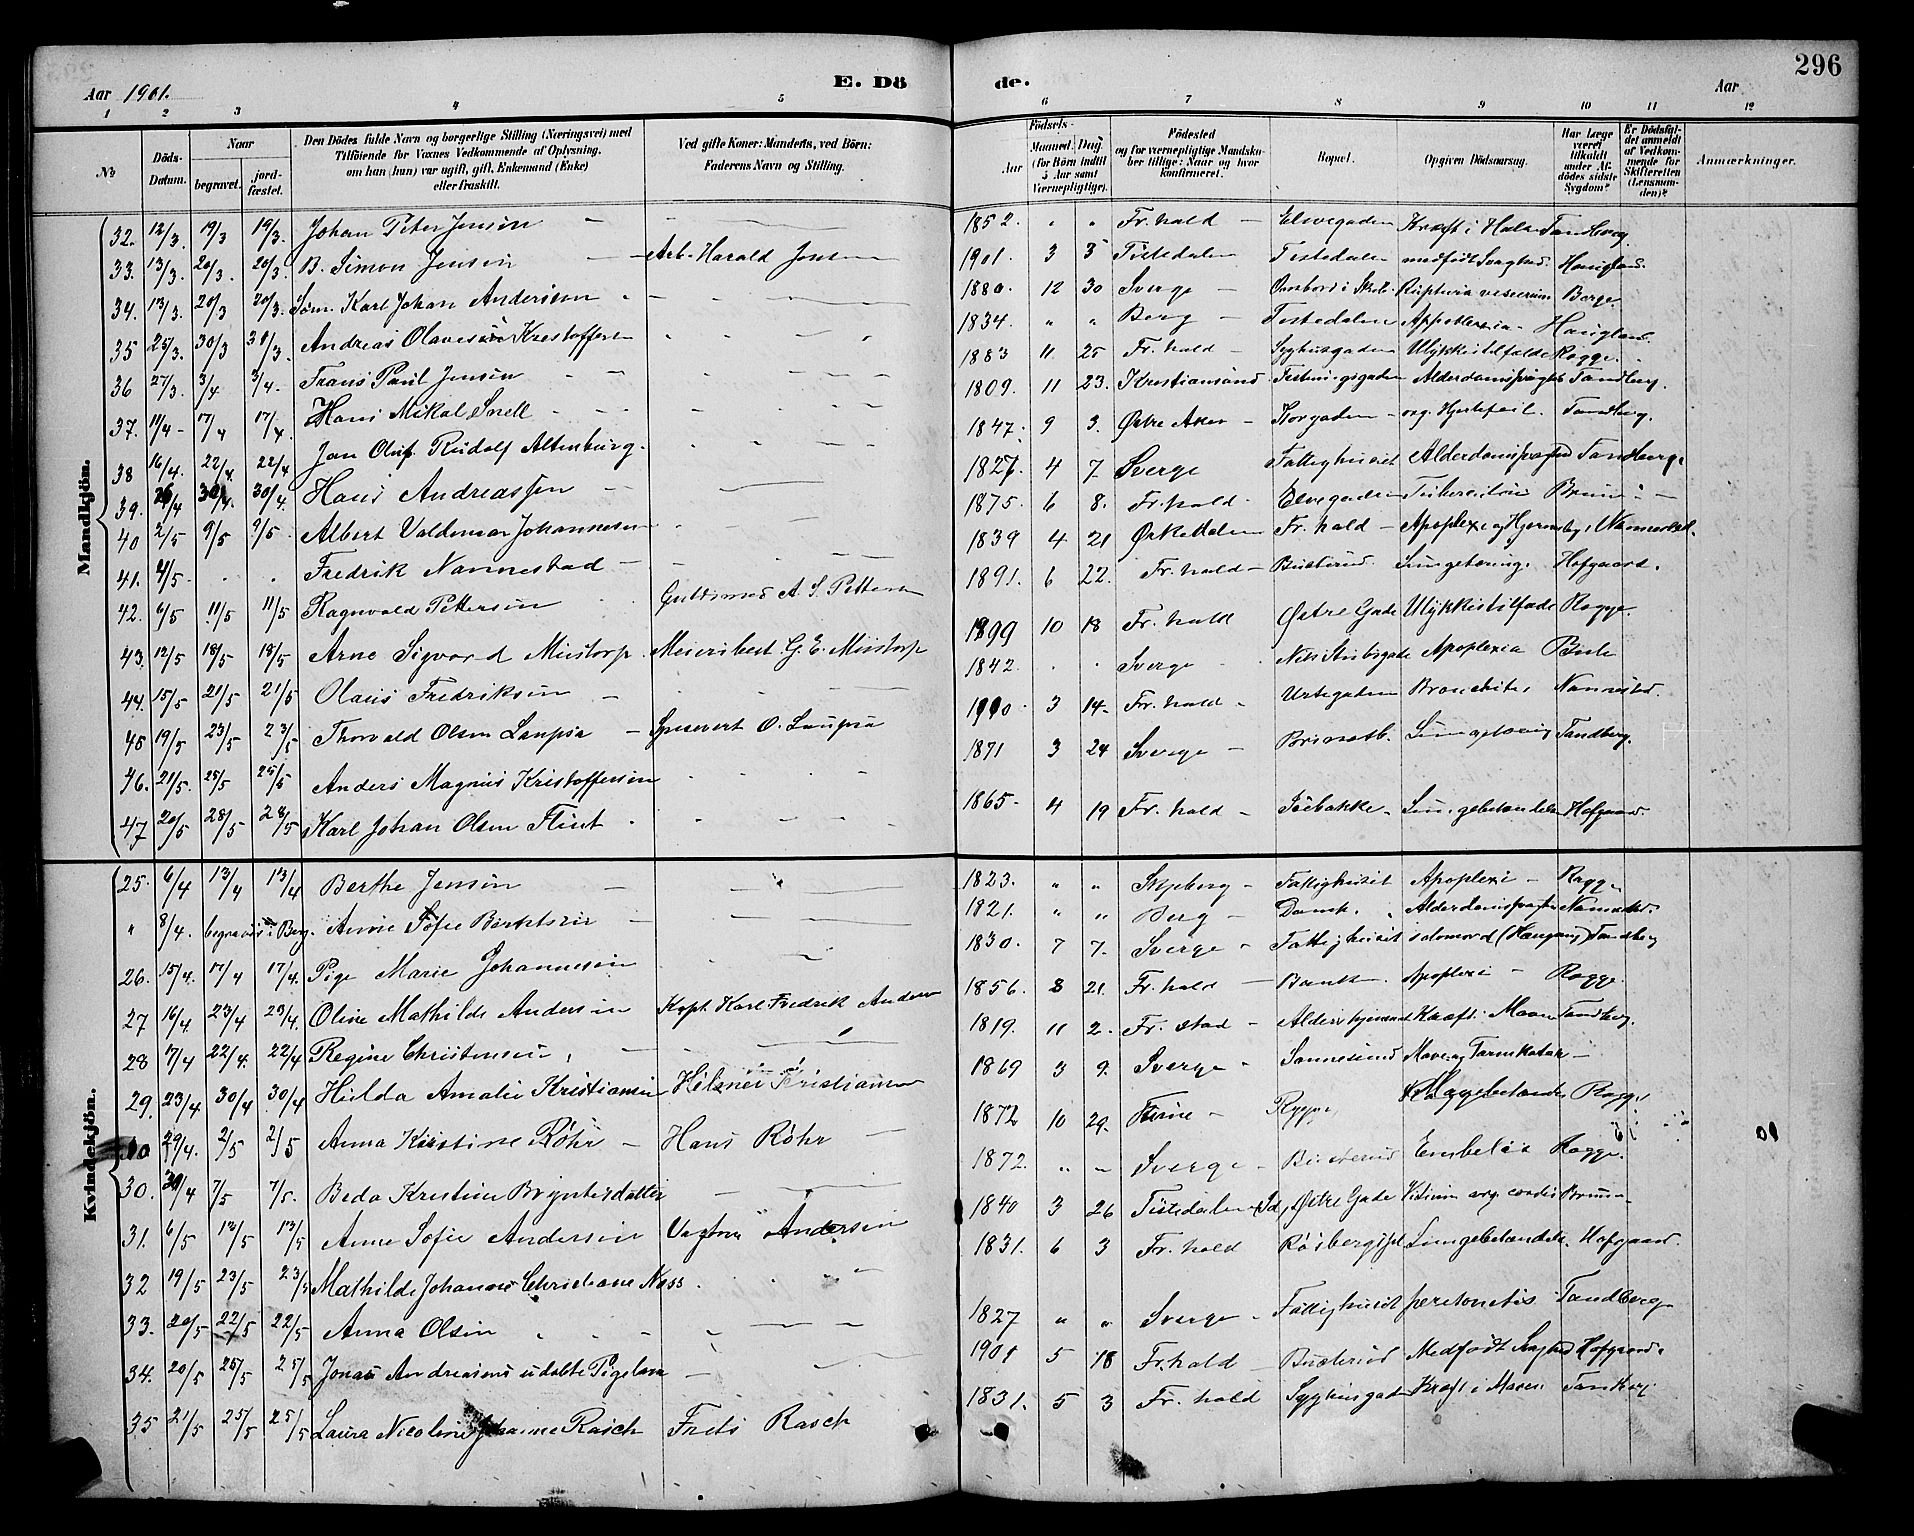 Aar 1901.
E. Dö
de.
Aar
296
1 2 3 4 5 6 7 8 9 10 11 12
No
Döds-Datum.
Naar
begravet.
jordfæstet.
Den Dödes fulde Navn og borgerlige Stilling (Næringsvei) med
Tilföiende for Voxnes Vedkommende af Oplysning,
om han (hun) var ugift, gift, Enkemand (Enke)
eller fraskilt.
Ved gifte Koner: Mandens, ved Börn:
Faderens Navn og Stilling.
Födsels-
Aar
Maaned. Dag.
(for Börn indtil 5 Aar samt Værnepligtige).
Födested
og for værnepligtige Mandskaber tillige: Naar og hvor konfirmeret.
Bopæl.
Opgiven Dödsaarsag.
Har Læge været tilkaldt under Afdödes sidste Sygdom?
Er Dödsfaldet anmeldt af Vedkommende for Skifteretten (Lensmanden)?
Anmærkninger.
Mandkjön.
32. 12/3. 19/3 19/3. Johan Peter Jensen — 1852. " " Fr.hald — Elvegaden Kræft i Halsen Tandberg.
33. 13/3. 20/3. 20/3. B. Simon Jensen — Arb. Harald Jensen 1901. 3 5 Tistedalen Tistedalen medfödt Svaghed. Haugland.
34. 13/3. 20/3 20/3. Söm. Karl Johan Andersen 1880. 12 30 Sverge — Ruptura viscerum Borge.
35 25/3. 30/3 30/3. Andreas Olavesen Kristoffersen 1834. " " Berg — Tistedalen Appoplexia Haugland.
36 27/3. 3/4 3/4. Frans Paul Jensen 1883 11. 25 Fr. hald — Syghusgaden Ulykkestilfælde Rogge.
37. 11/4 17/4 17/4. Hans Mikal Snell 1809. 11 23. Kristiansand Alderdomssvaghed Tandberg.
38 16/4. 22/4. 22/4 Jan Oluf Rudolf Altenburg. 1847. 9 3. Östre Aker — Storgaden — org. Hjertefeil. Tandberg.
39. 26/4 30/4. 30/4. Hans Andreassen 1827. 4 7 Sverge Fattighuset Alderdomssvaghed Tandberg
40 2/5 9/5 9/5. Albert Valdemar Johannesen 1875. 6 8. Fr.hald. Elvegaden Tuberculose Bruun
41. 4/5. Fredrik Nannestad 1839 4 21 Fr. hald — Apoplexi
42. 6/5 11/5 11/5 Ragnvald Pettersen Guldsmed A. S. Pettersen 1891. 6 22. Fr. hald — Busterud. Hofgaard.
43. 12/5 18/5 18/5 Arne Sigvard Miistorp Meieribest. G. E. Miistorp 1899 10 18 Fr. hald Östre Gade Ulykkestilfælde Rogge.
44. 15/5 21/5 21/5 Olaus Fredriksen 1842. Sverge Nils Stubsgade Apoplexia
45 19/5 23/5 23/5 Thorvald Olsen Laupsa — Spisevert O. Laupsa 1900. 3 14. Fr. hald Urtegaden Bronchites Nannestad.
46. 21/5. 25/5 25/5 Anders Magnus Kristoffersen 1871 3 24 Sverge — Tandberg.
47 20/5 28/5 28/5 Karl Johan Olsen Flint 1865. 4 19 Fr. hald — Isebakke Hofgaard.
Kvindekjön.
25. 6/4 13/4 13/4 Berthe Jensen 1823. " " Skjeberg — Fattighuset Apoplexi — Rogge
" 8/4. begravet i Berg. Anne Sofie Berntsen 1821. " " Berg — Damk. Alderdomssvaghed Nannestad.
26. 15/4. 17/4 17/4. Pige Marie Johannesen 1830. 7 7. Sverge — Fattighuset selvmord (Hængning) Tandberg
27 16/4. 23/4 23/4. Oline Mathilde Andersen Kapt. Karl Fredrik Andersen 1856. 8 21. Fr. hald — Bankb. Apoplexi — Rogge.
28 17/4 22/4. 22/4 Regine Christensen 1819. 11 2. Fr. stad — Alderskjemmet Kræft i Maven Tandberg.
29. 23/4 30/4 30/4 Hilda Amalie Kristiansen Kristiansen 1869 3 9. Sverge — Sannesund Mave og Tarmkatar —
30 29/4. 2/5 2/5 Anna Kirstine Röhr — Hans Röhr — 1872 10 29. Rogge
30. 30/4 7/5 7/5. Beda Kristine Bryntesdatter 1872. " — Sverge — Busterud Embelöis Rogge.
31. 6/5 13/5 13/5 Anne Sofie Andersen Andersen 1840 3 26 Tistedalen Östre Gade Vitium org. cordis Bruun
32 19/5 23/5 23/5 Mathilde Johanne Christiane Ness 1831. 6 3 Fr. hald Lungebetændelse. Hofgaard.
33. 20/5 22/5 22/5 Anna Olsen 1827 " " Sverge Fattighuset peretonetis Tandberg
34. 20/5 25/5 25/5 Jonas Andreasens udöbte Pigebarn 1901 5 18 Fr.hald — Busterud Medfödt Svaghed Hofgaard.
35 21/5 25/5 25/5 Laura Nicoline Johanne Rasch Frits Rasch 1831. 5 3 Fr. hald Syghusgaden Kræft i Maven Tandberg